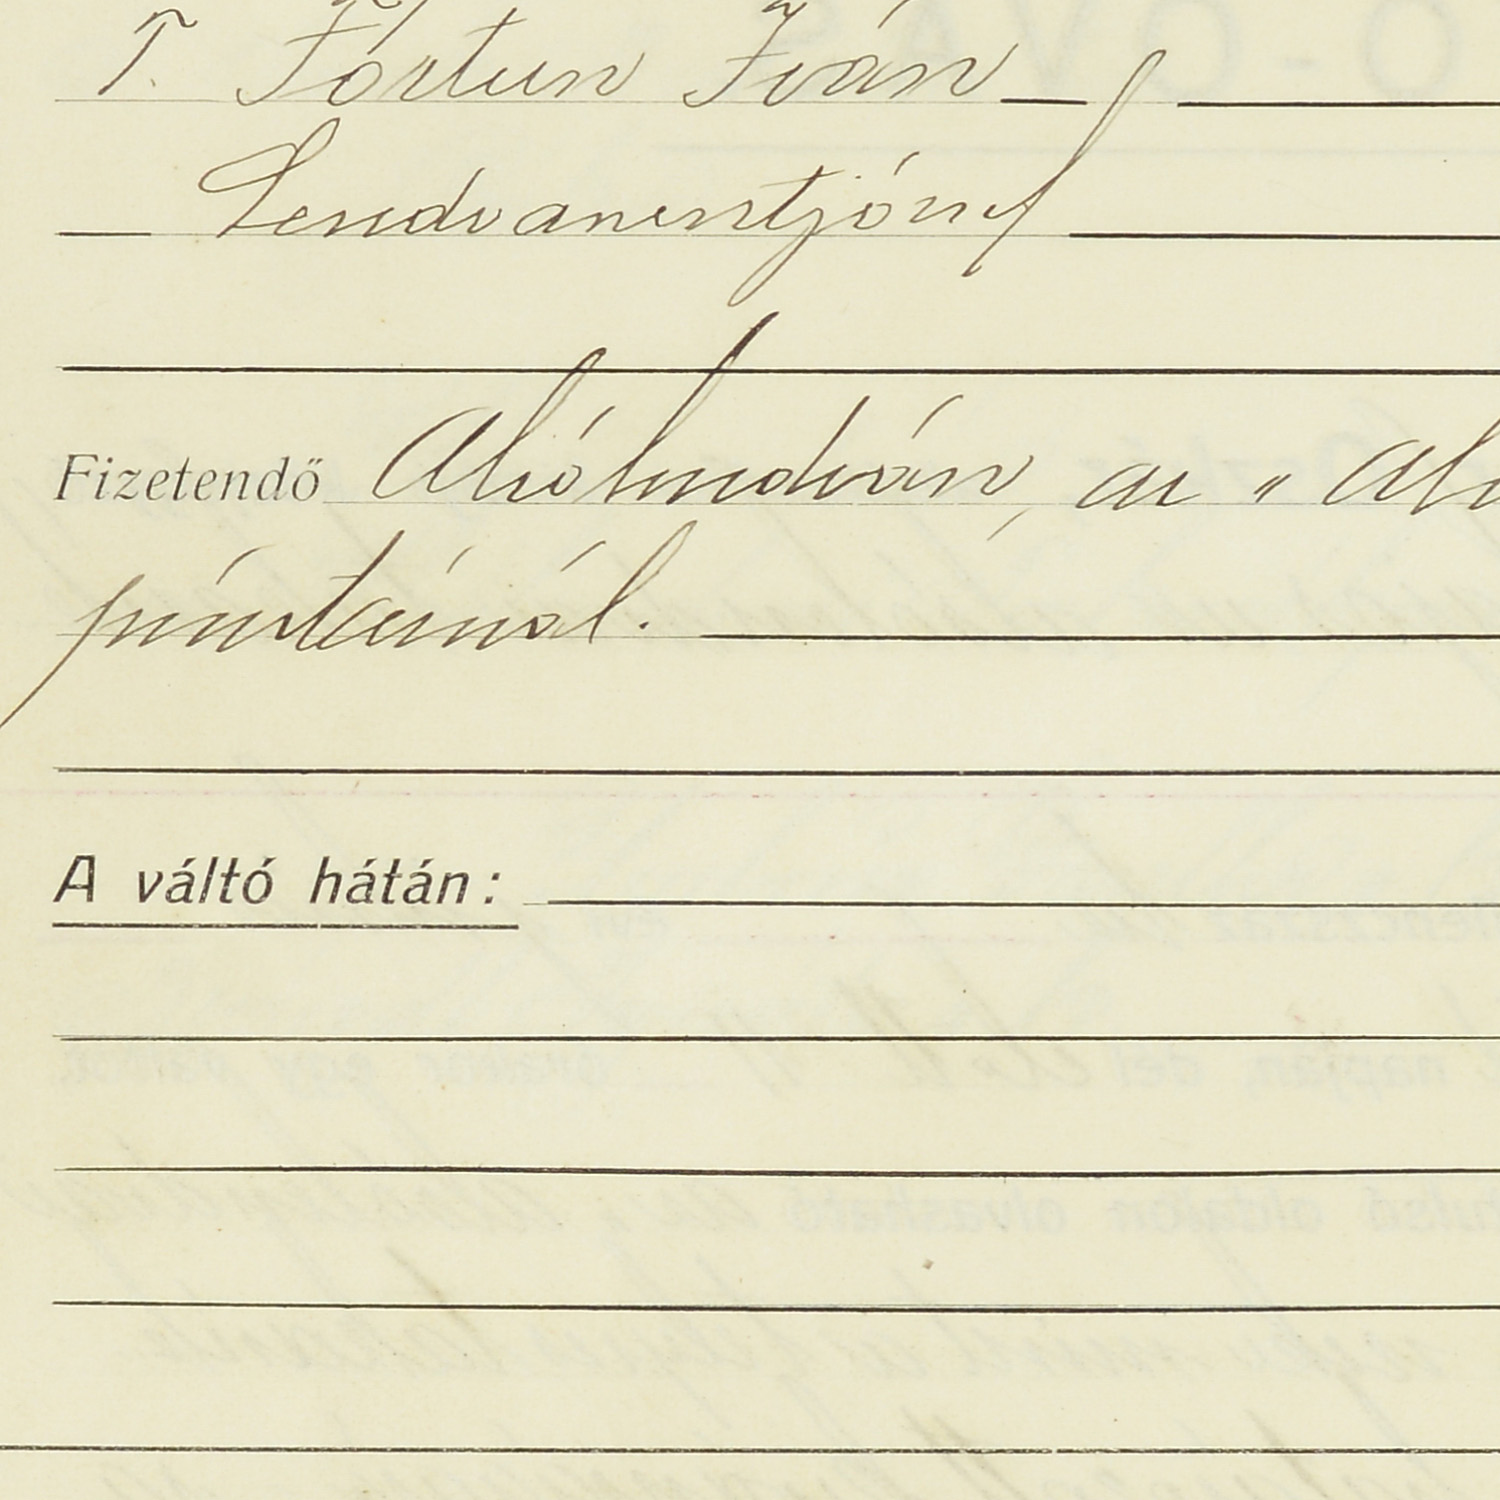 T. Fórtun Iván
Lendvaszentjózsef
Fizetendő Alsólendván, az „Als
pénztáránál.
A váltó hátán: